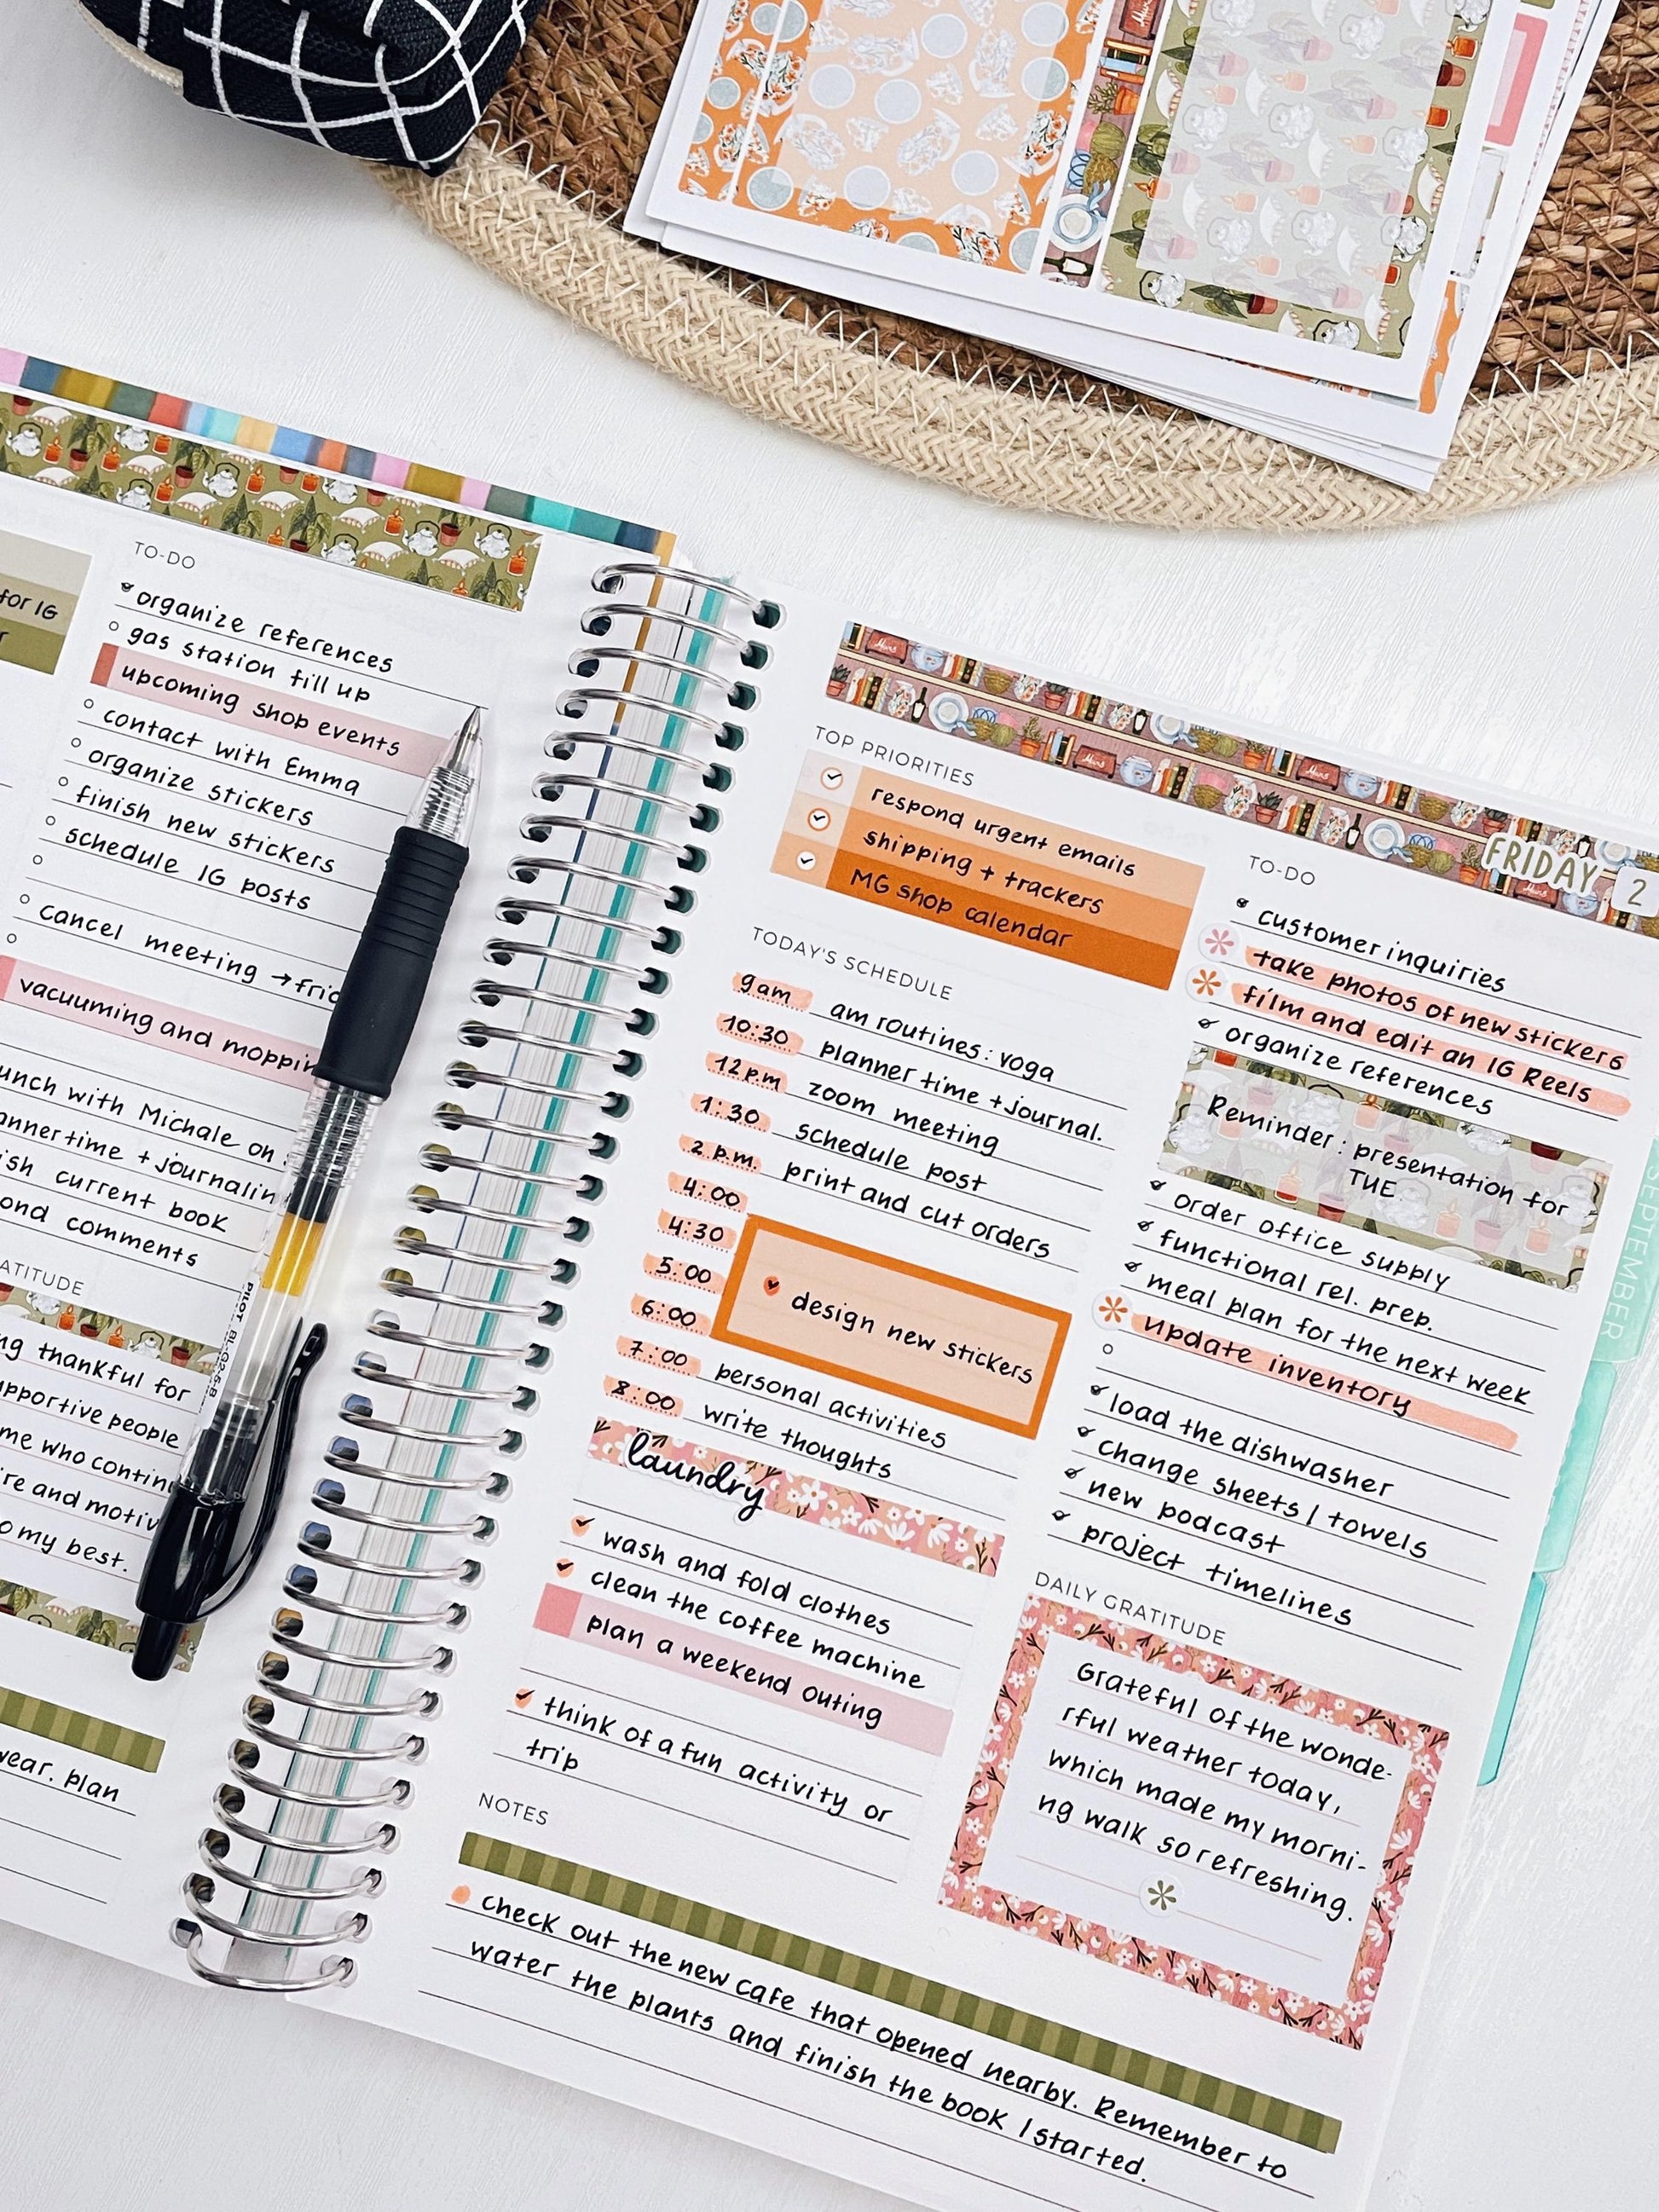 for IG
TO-DO
organize references
gas station fill up
upcoming shop events
contact with Emma
organize stickers
finish new stickers
schedule IG posts
cancel meeting →
vacuuming and
with Michale on
+ journalin
current book
comments
thankful for
people
me who
and
o my best.
wear. plan
PILOT BL-G2-5-B
FRIDAY 2
TOP PRIORITIES
respond urgent emails
shipping + trackers
MG shop calendar
TODAY'S SCHEDULE
9am am routines: yoga
10:30 planner time + journal.
12p.m zoom meeting
1:30 schedule post
2 p.m. print and cut orders
4:00
4:30
5:00 design new stickers
6:00
7:00 personal activities
8:00 write thoughts
laundry
wash and fold clothes
clean the coffee machine
plan a weekend outing
think of a fun activity or
trip
TO-DO
customer inquiries
take photos of new stickers
film and edit an IG Reels
organize references
Reminder: presentation for
TUE
order office supply
functional rel. prep.
meal plan for the next week
update inventory
load the dishwasher
change sheets / towels
new podcast
project timelines
DAILY GRATITUDE
Grateful of the wonde-
rful weather today,
which made my morni-
ng walk so refreshing.
NOTES
check out the new cafe that opened nearby. Remember to
water the plants and finish the book I started.
SEPTEMBER